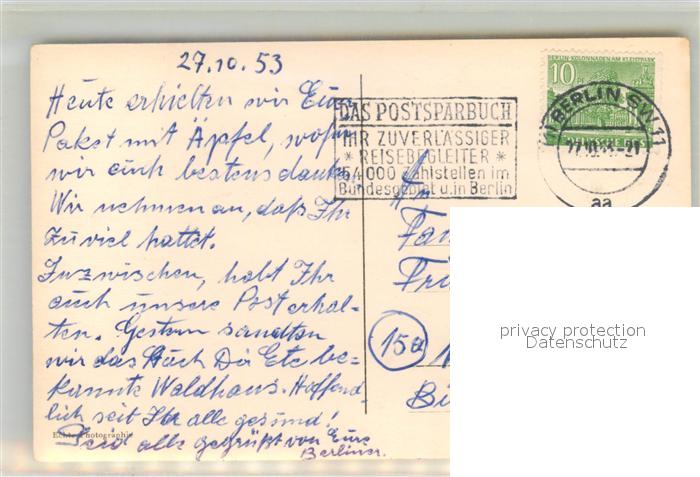 27.10.53
Heute erhielten wir Euer
Paket mit Äpfel, wofür
wir auch bestens danken.
Wir nehmen an, daß Ihr
zu viel hattet.
Inzwischen, habt Ihr
auch unsere Post erhal-
ten. Gestern sandten
wir das Dir be-
kannte Waldhaus. Hoffend-
lich seit Ihr alle gesund!
Seid alle gegrüßt von Eure
Berliner.
Echte Photographie
DAS POSTSPARBUCH
IHR ZUVERLÄSSIGER
* REISEBEGLEITER *
54000 Zahlstellen im
Bundesgebiet u. in Berlin
BERLIN-KOLONNADEN AM KLEISTPARK
10
BERLIN SW 11
27.10.53.-21
aa
An
Fam
Fri
15a
privacy protection
Datenschutz